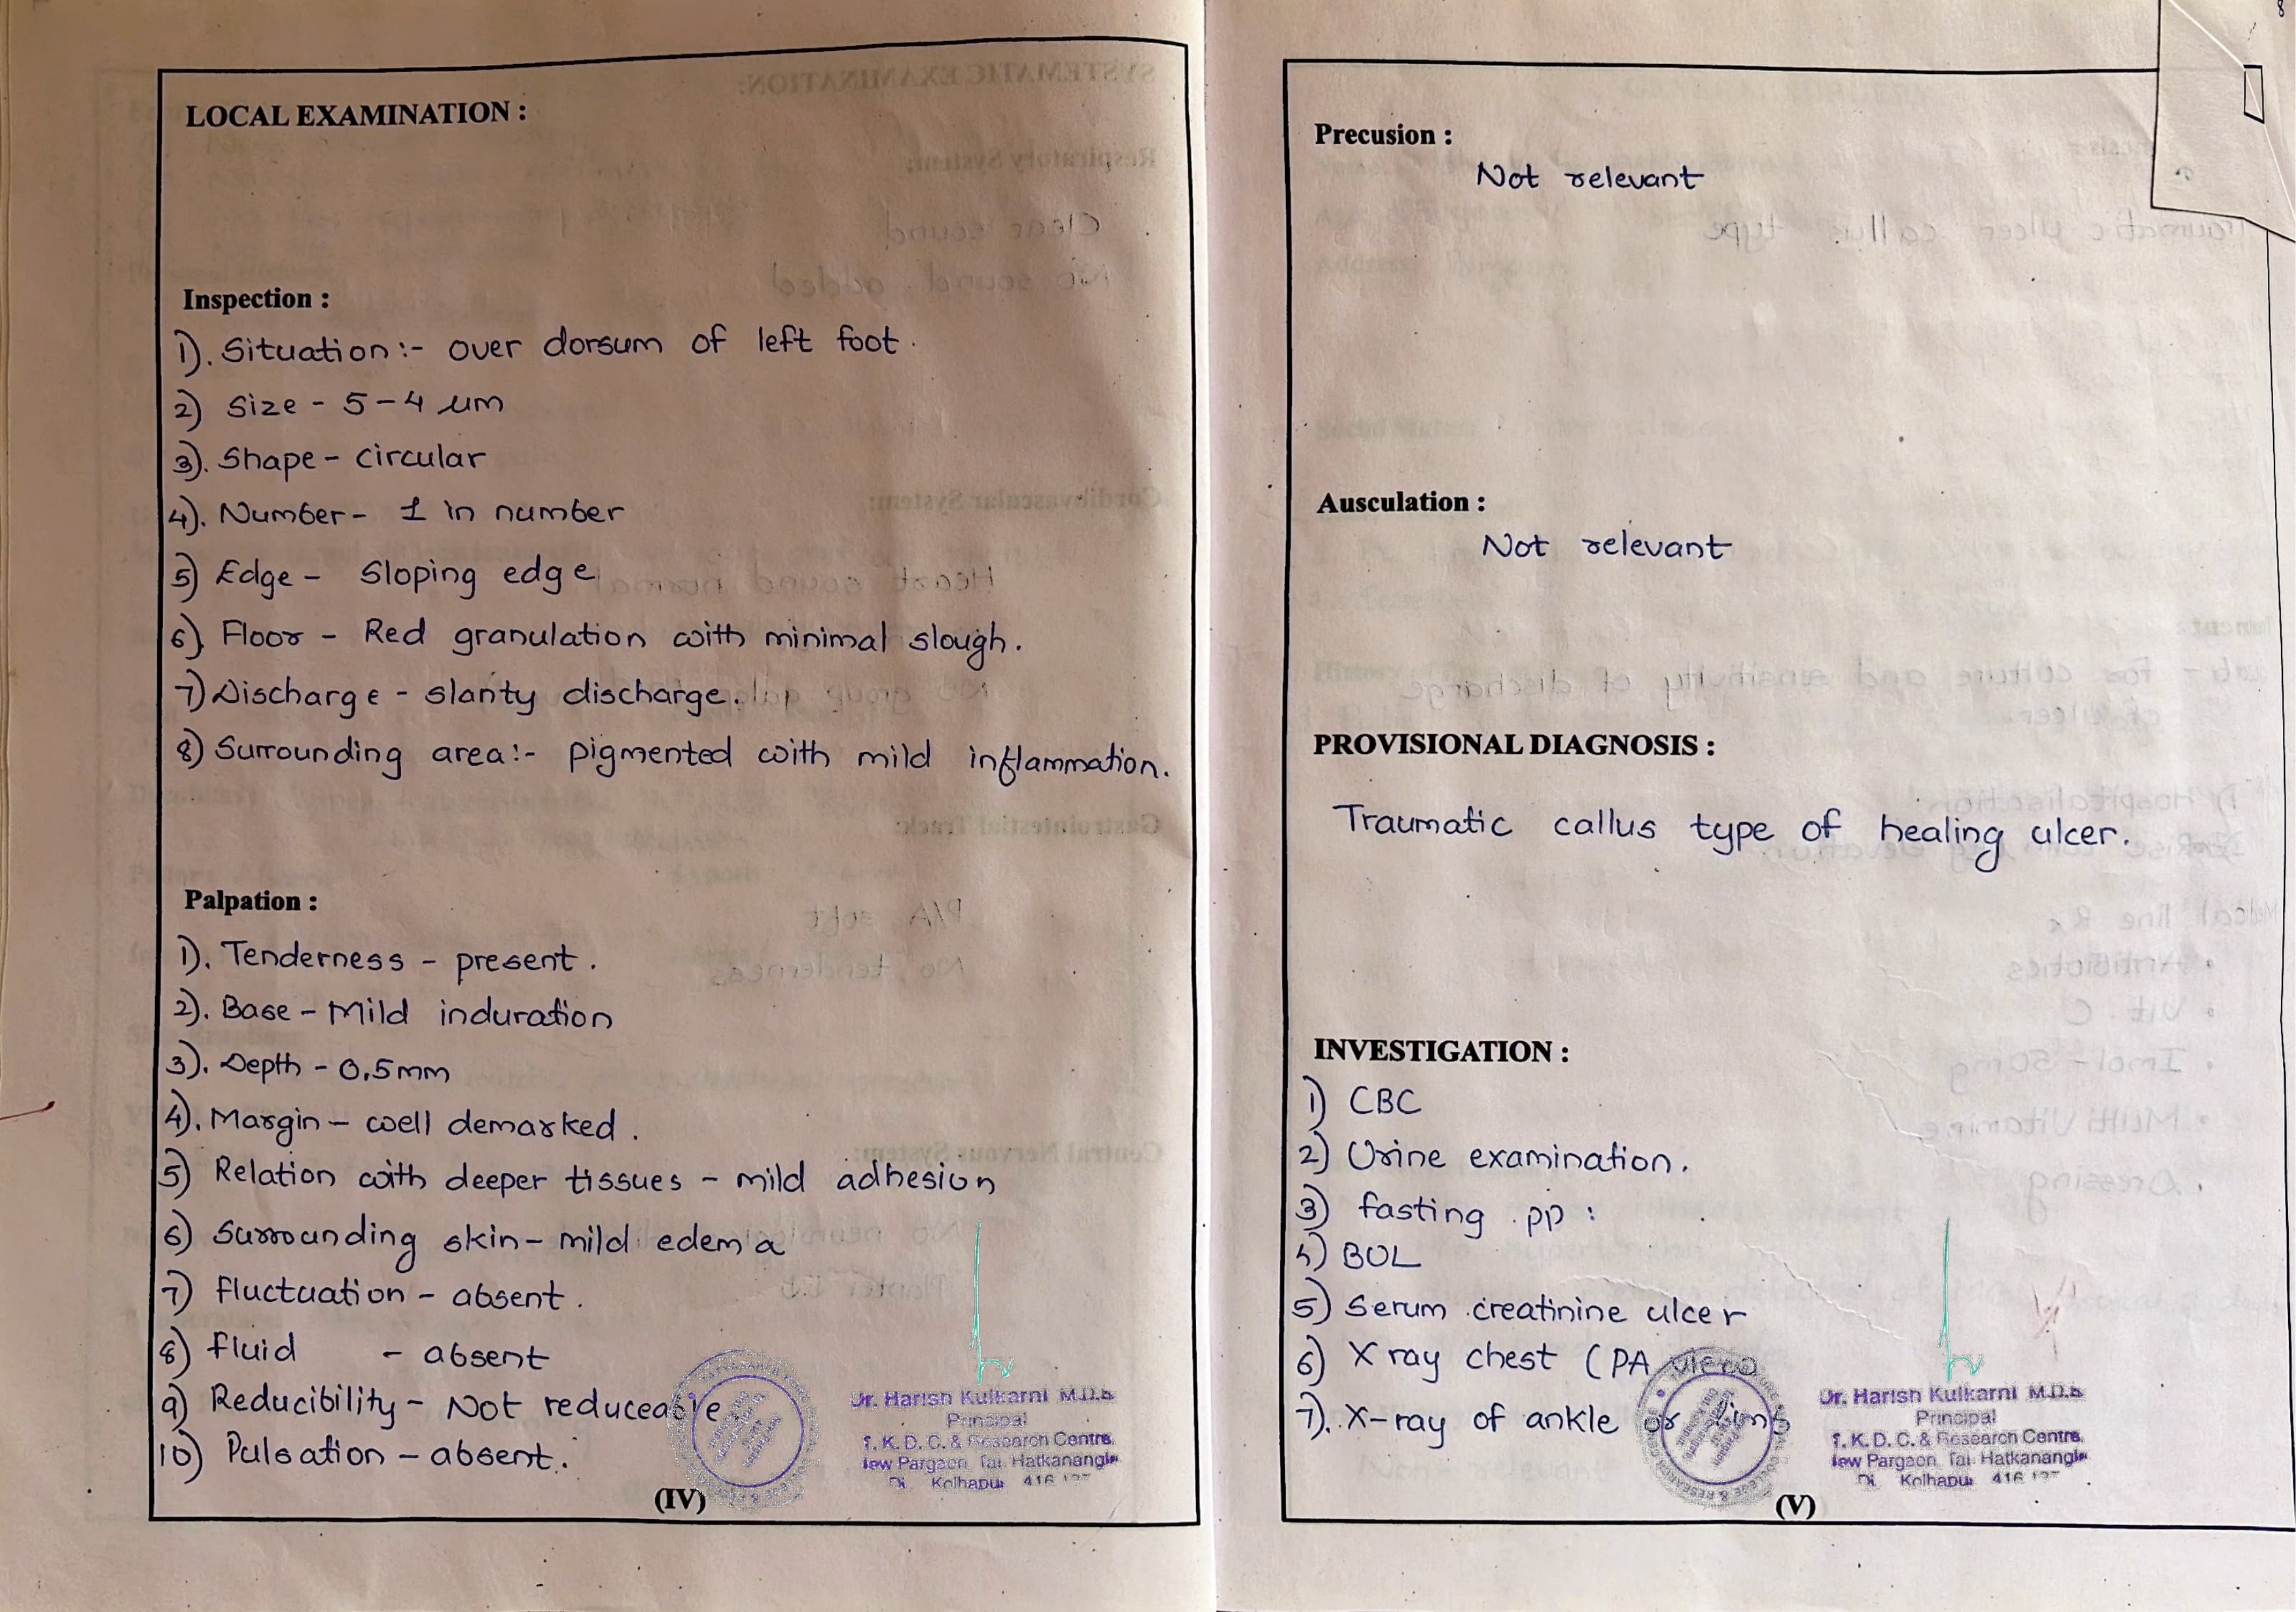 LOCAL EXAMINATION :
Inspection :
1). Situation :- over dorsum of left foot.
2) Size - 5-4 um
3). Shape - circular
4). Number - 1 in number
5) Edge - Sloping edge
6). Floor - Red granulation with minimal slough.
7) Discharge - slanty discharge.
8) Surrounding area:- pigmented with mild inflammation.
Palpation :
1). Tenderness - present.
2). Base - Mild induration
3). Depth - 0.5mm
4). Margin - well demarked.
5) Relation with deeper tissues - mild adhesion
6) Surrounding skin - mild edema
7) fluctuation - absent.
8) fluid - absent
9) Reducibility - Not reduceable.
10) Pulsation - absent.
Dr. Harish Kulkarni M.D.S
Principal
T. K. D. C. & Research Centre,
New Pargaon, Tal. Hatkanangle
Di. Kolhapur 416
(IV)
Precusion :
Not relevant
Ausculation :
Not relevant
PROVISIONAL DIAGNOSIS :
Traumatic callus type of healing ulcer.
INVESTIGATION :
1) CBC
2) Urine examination.
3) fasting pp :
4) BOL
5) Serum creatinine ulcer
6) X ray chest (PA view
7). X-ray of ankle or
Dr. Harish Kulkarni M.D.S
Principal
T. K. D. C. & Research Centre,
New Pargaon, Tal. Hatkanangle
Di. Kolhapur 416
(V)